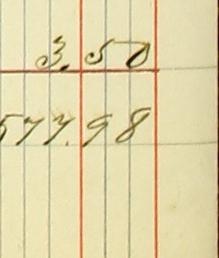 3.50
577.98